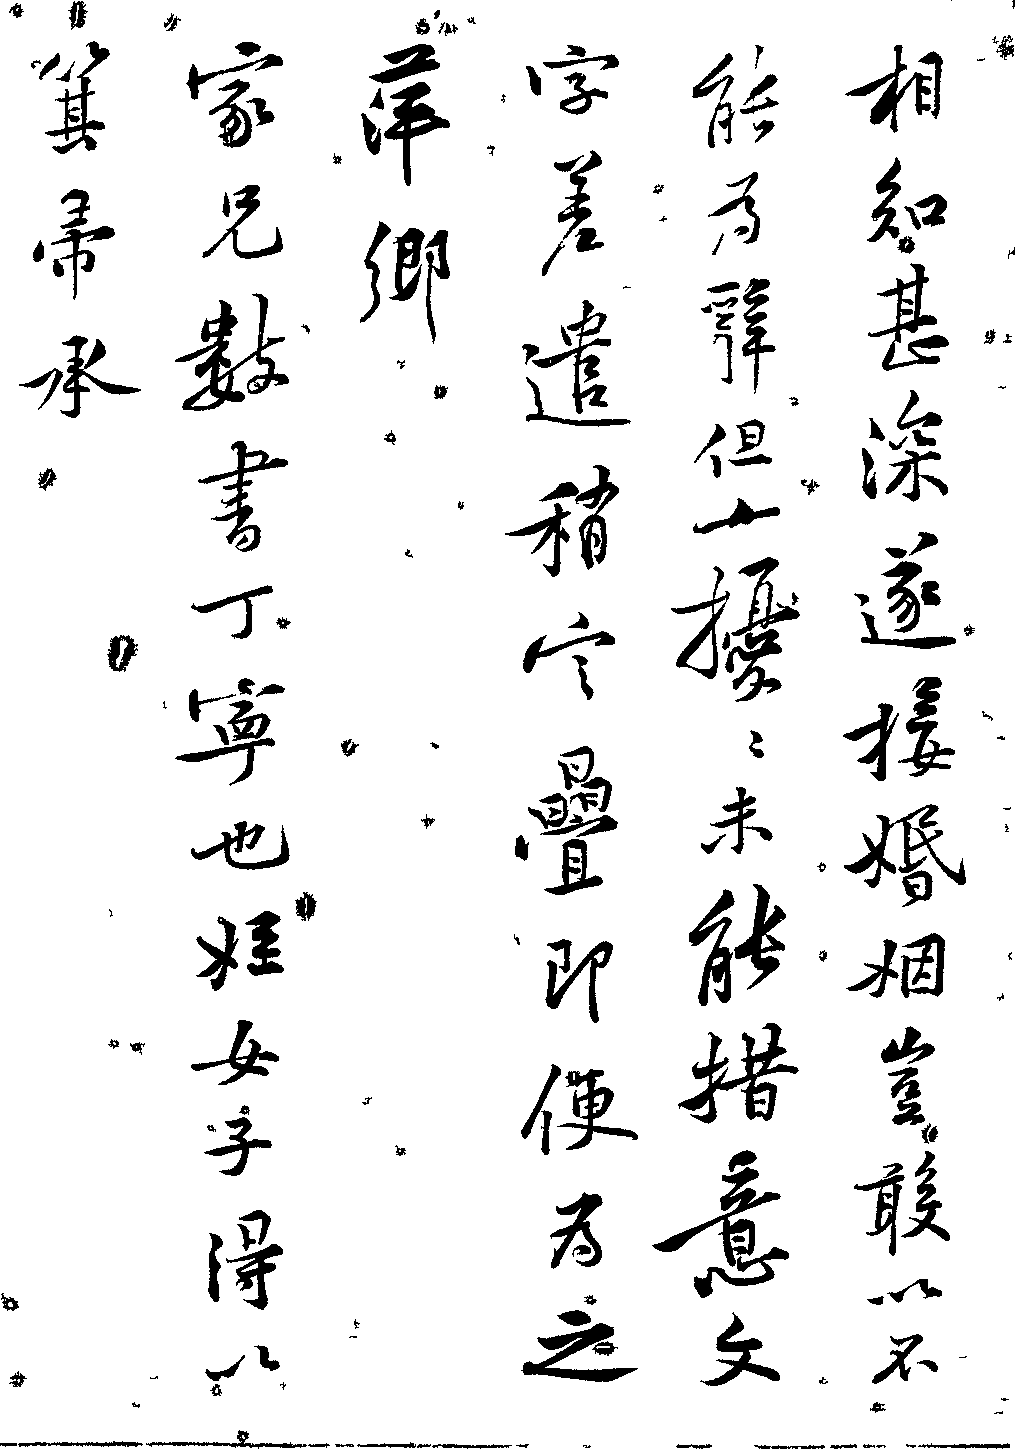 相知甚深遂接婚姻豈敢以不
能為辭但擾〻未能措意文
字差遣稍定疊即便為之
萍鄉
家兄數書丁寧也姪女子得以
箕帚承